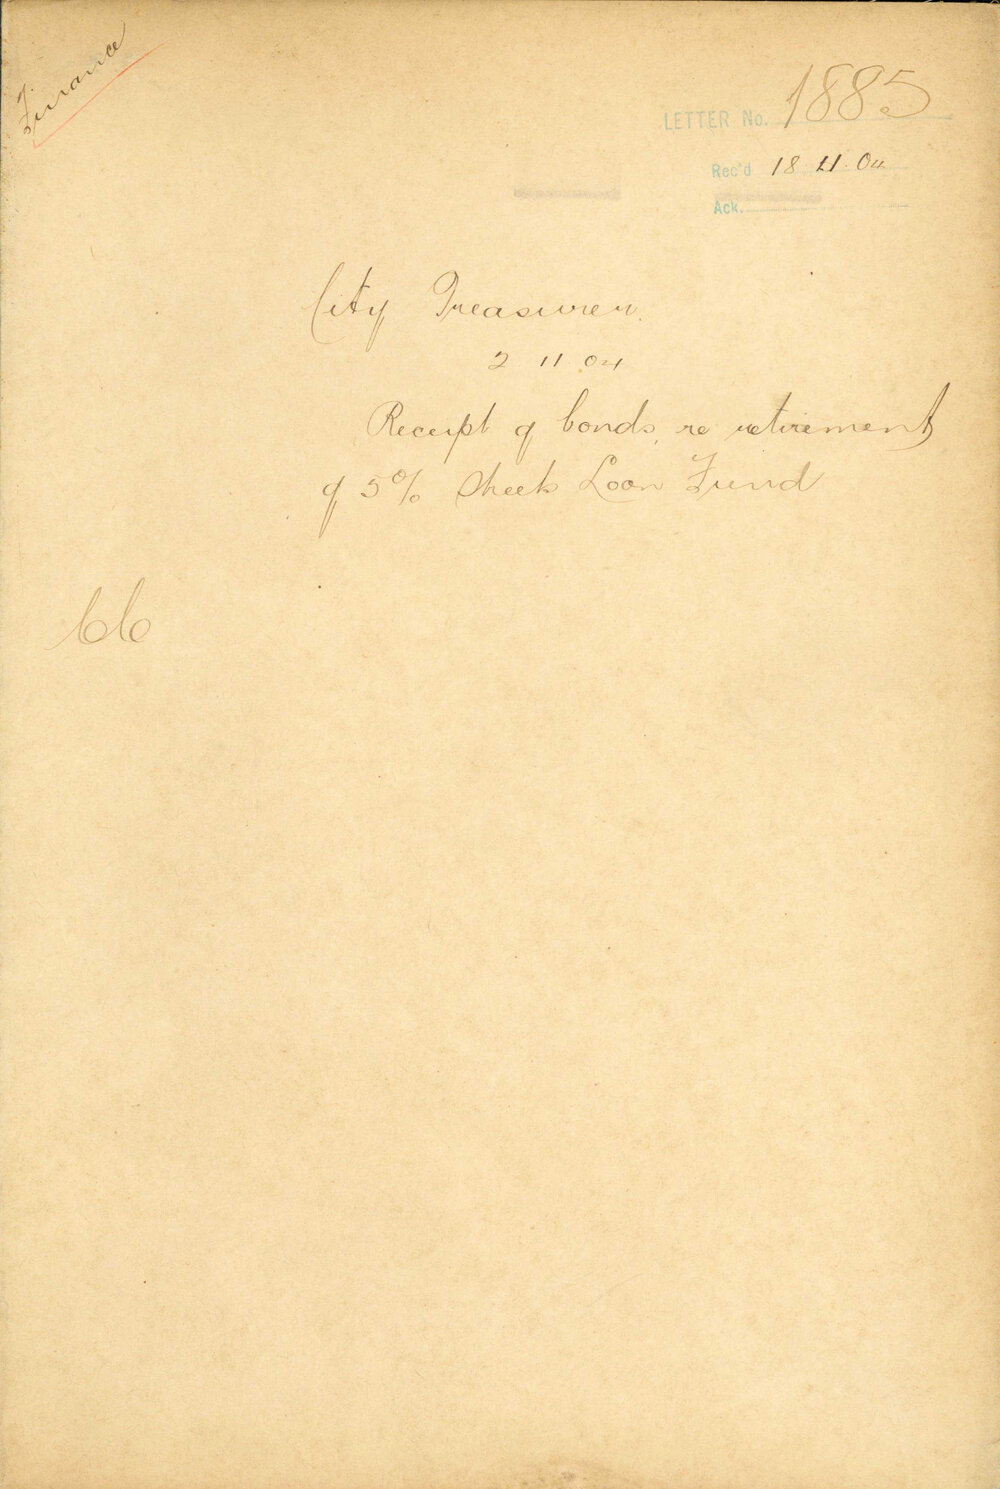 Finance
LETTER No. 1885
Rec'd 18 11. 04
Ack.
City Treasurer.
2 11 04
Receipt of bonds, re retirement
of 5% Sheets Loan Fund
66